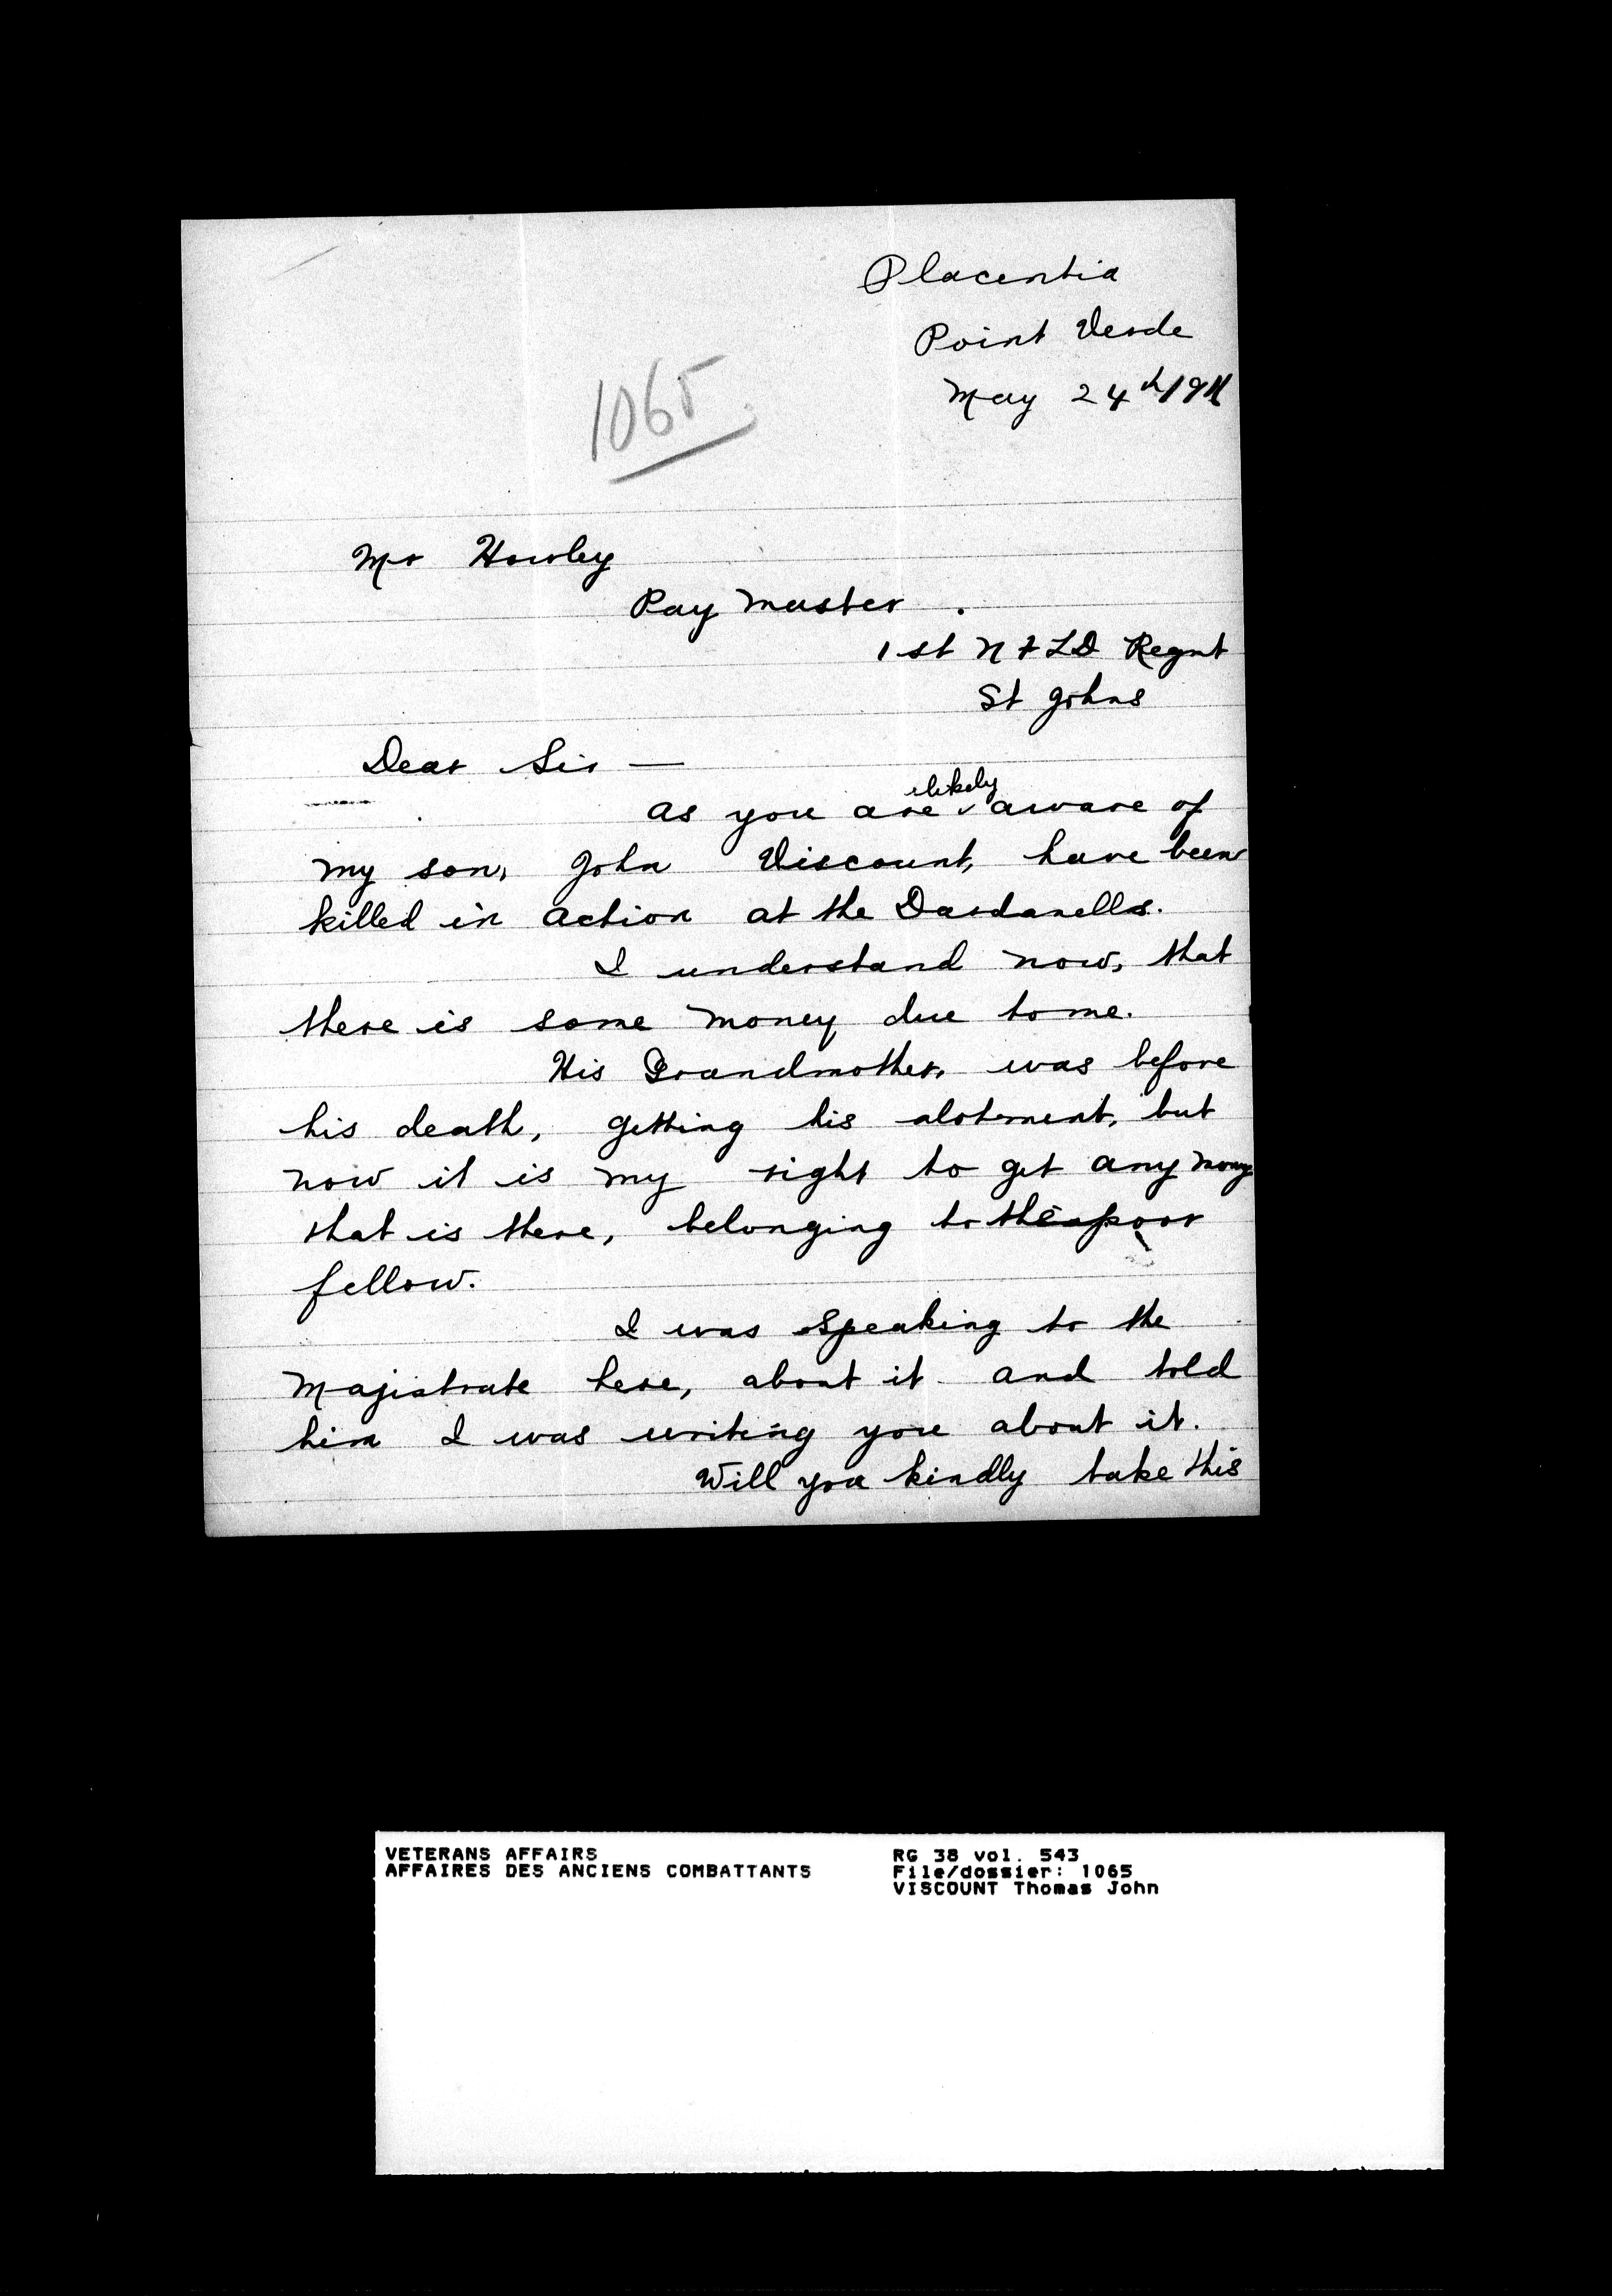 Placentia
Point Verde
May 24th 191
1065
Mr Howley
Pay Master .
1st NFLD Regmt
St Johns
Dear Sir —
likely
as you are aware of
my son, John Viscount, have been
killed in action at the Dardanells.
I understand now, that
there is some money due to me.
His Grandmother, was before
his death, getting his alotment, but
now it is my right to get any money
that is there, belonging to the poor
fellow.
I was speaking to the
Majistrate here, about it and told
him I was writing you about it.
Will you kindly take this
VETERANS AFFAIRS
AFFAIRES DES ANCIENS COMBATTANTS
RG 38 vol. 543
File/dossier: 1065
VISCOUNT Thomas John